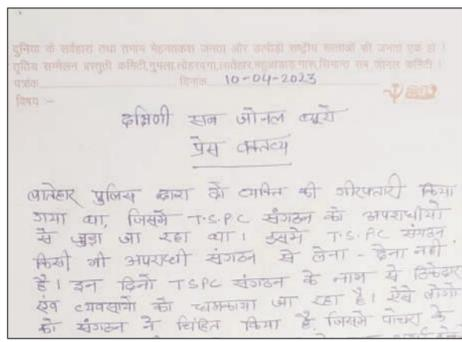 दुनिया के सर्वहारा तथा तमाम मेहनतकश जनता और उत्पीड़ी राष्ट्रीय सत्ताओं की जनता एक हो ।
तृतीय सम्मेलन प्रस्तुती कमिटी, गुमला, लोहरदगा, लातेहार, सब जोनल कमिटी ।
पत्रांक दिनांक 10-04-2023
विषय :-
दक्षिणी सब जोनल ब्यूरो
प्रेस वक्तव्य
लातेहार पुलिस द्वारा दो व्यक्ति की गीरफ्तारी किया
गया था, जिसमें T.S.P.C संगठन को अपराधीयो
से जुड़ा जा रहा था। इसमे T.S.P.C संगठन
किसी भी अपराधी संगठन से लेना-देना नही
है। इन दिनों TSPC संगठन के नाम से ठिकेदार
एंव व्यवसायी को धामकाया जा रहा है। ऐसे लोगो
को संगठन ने चिंहित किया है, जिसमे पोचरा के